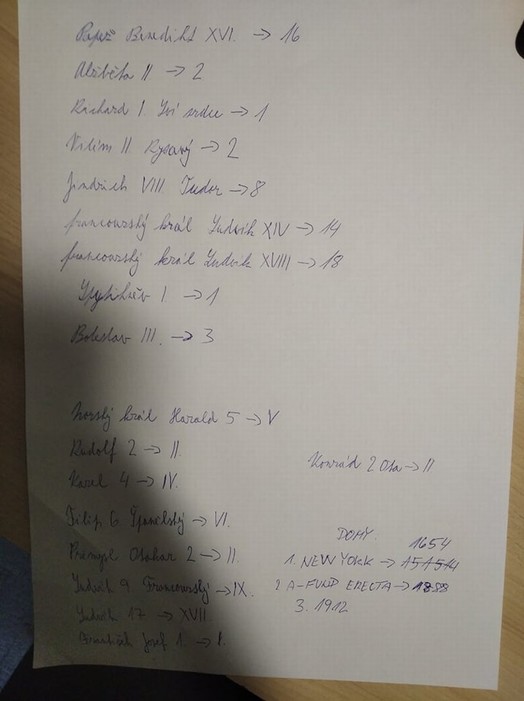 Papež Benedikt XVI. → 16
Alžběta II → 2
Richard I. Lví srdce → 1
Vilém II Ryšavý → 2
Jindřich VIII. Tudor → 8
francouzský král Ludvík XIV → 14
francouzský král Ludvík XVIII → 18
Spytihněv I → 1
Boleslav III. → 3
norský král Harald 5 → V
Rudolf 2 → II.
Karel 4 → IV.
Filip 6. Španělský → VI.
Přemysl Otakar 2 → II.
Ludvík 9. Francouzský → IX.
Ludvík 17 → XVII
František Josef 1. → I.
Konrád 2 Ota → II
DOMY
1654
1. NEW YORK →
2 A-FUND ERECTA → 1888
3. 1912